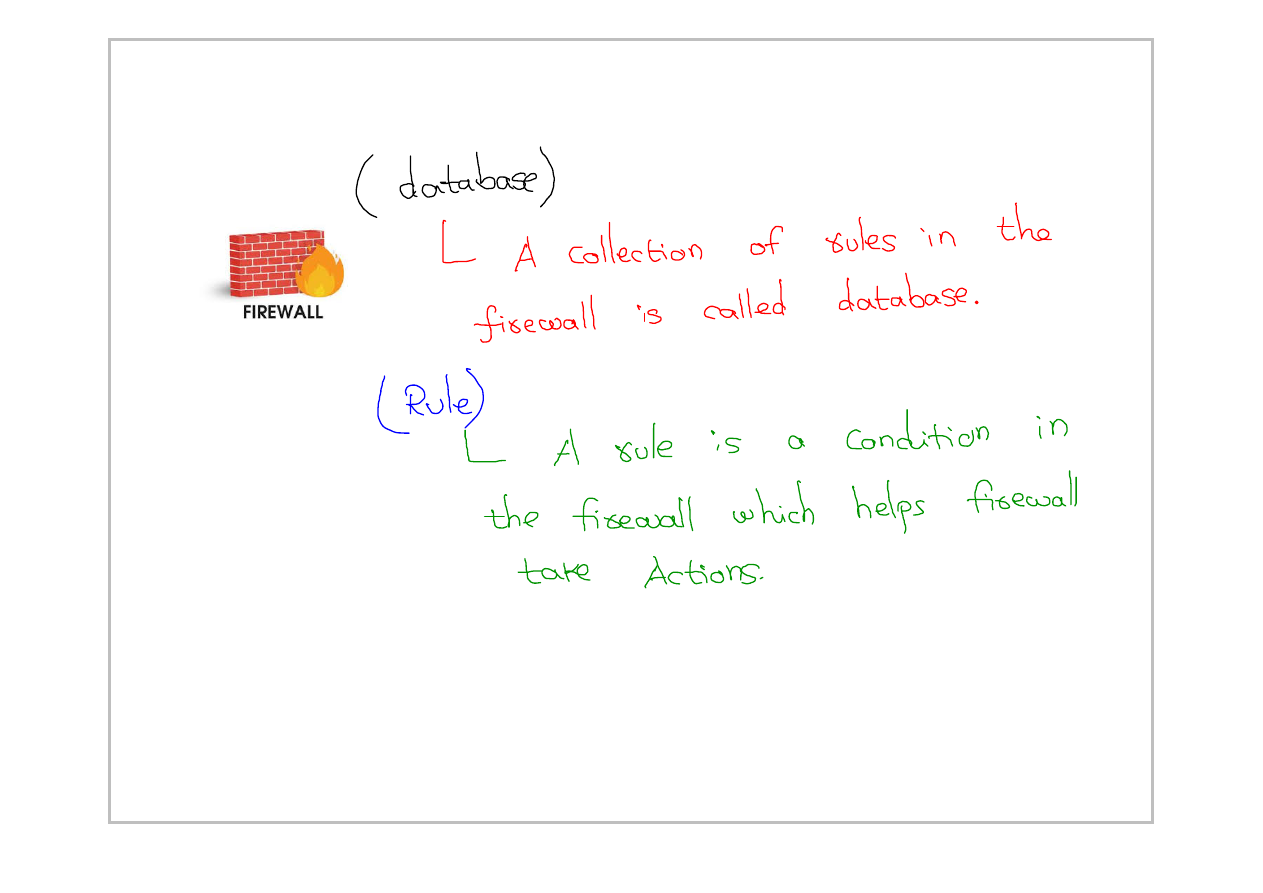 (database)
A collection of rules in the
firewall is called database.
FIREWALL
(Rule)
A rule is a condition in
the firewall which helps firewall
take Actions.